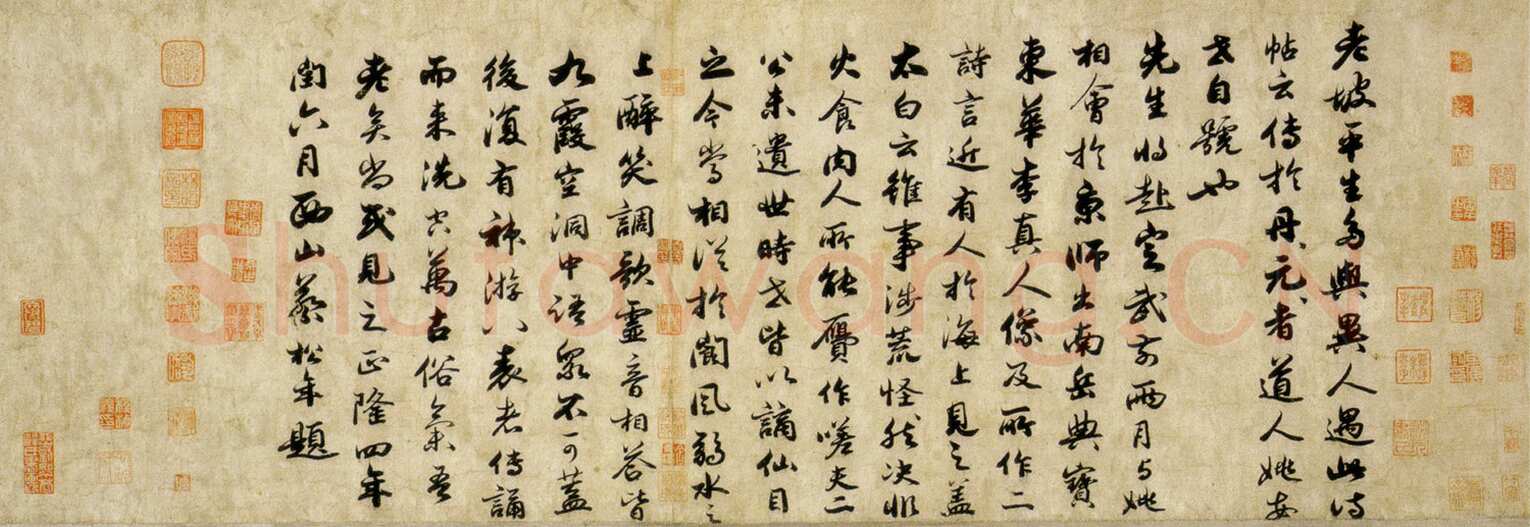 老坡平生多與異人遇此詩
帖云傳於丹、元、者道人姚安
世自號也
先生將赴定武前兩月與姚
相會於京師出南岳典寶
東華李真人像及所作二
詩言近有人於海上見之蓋
太白云雖事涉荒怪然決非
火食肉人所能贗作嗟夫二
公未遺世時世皆以謫仙目
之今當相從於閬風弱水之
上醉笑調歌靈音相答皆
九霞空洞中語眾不可蓋
後復有神游八表者傳誦
而來洗空萬古俗氣吾
老矣尚或見之正隆四年
閏六月西山蔡松年題
Shufawang.CN